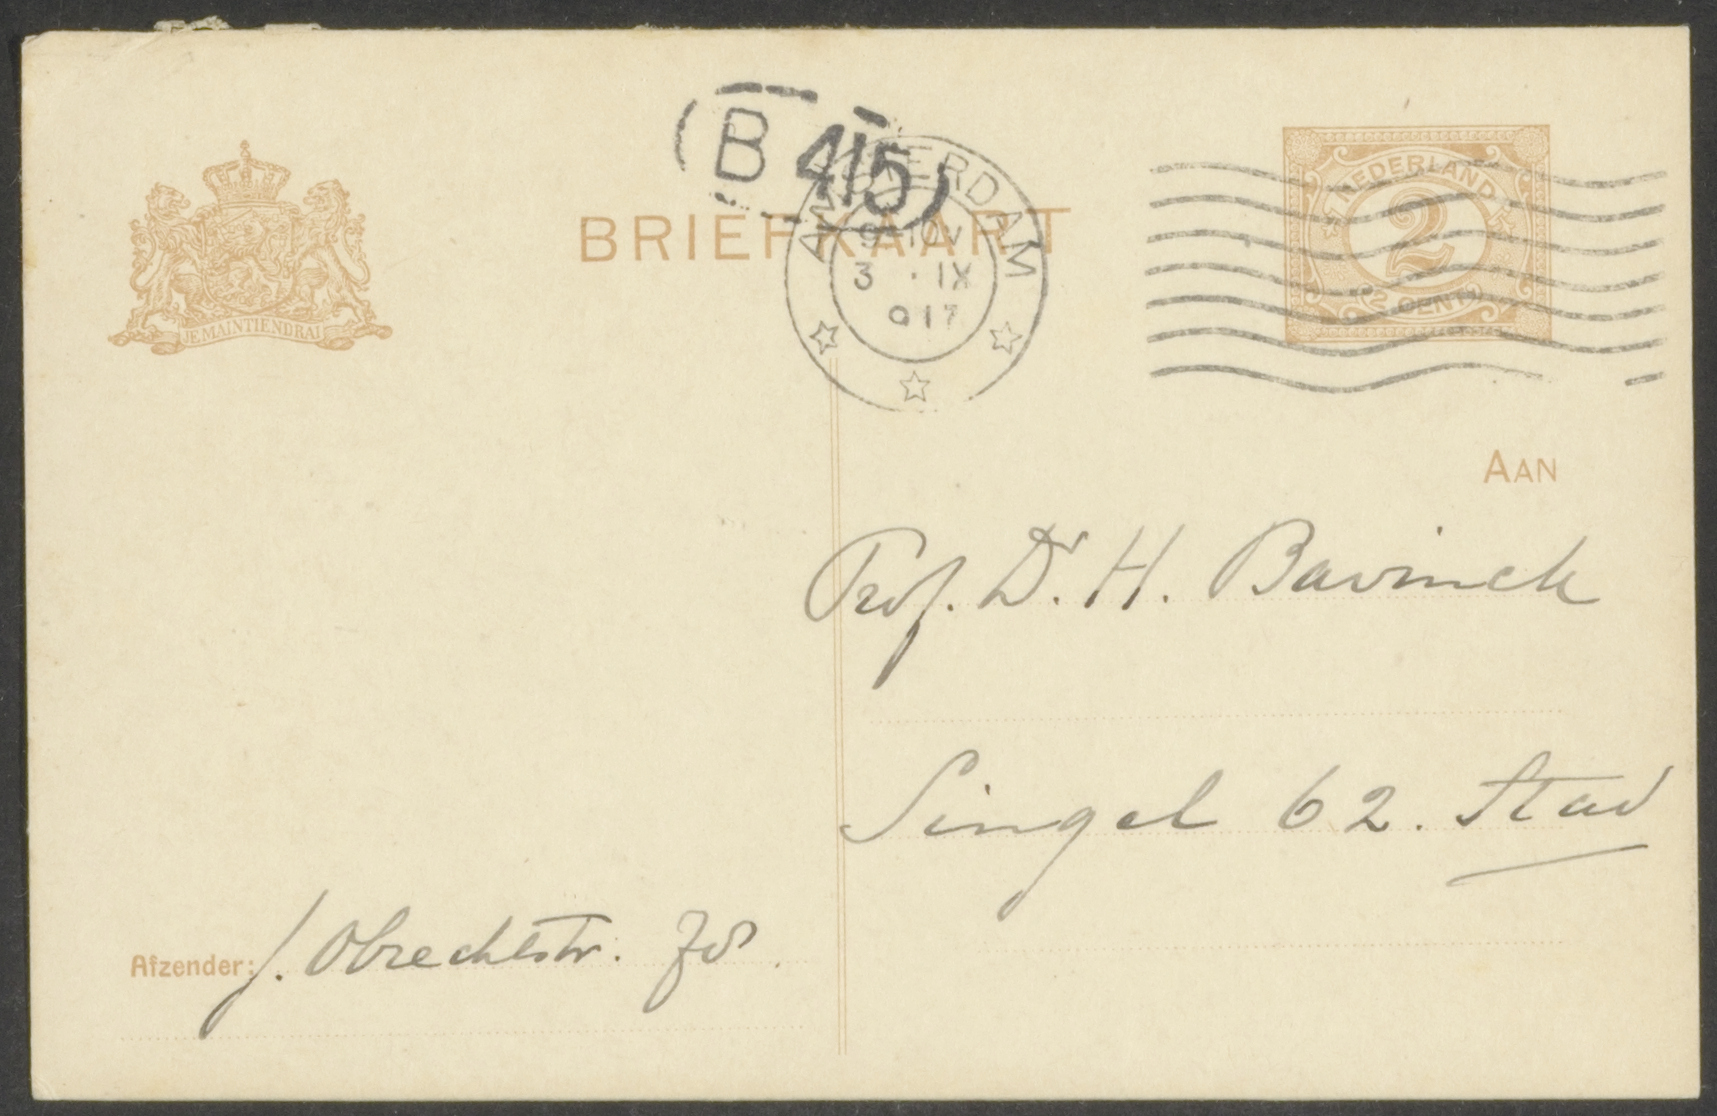 B 415
AMSTERDAM
9-10V
3 · IX
917
BRIEFKAART
JE MAINTIENDRAI
NEDERLAND
2
2 CENT 2
AAN
Prof. Dr. H. Bavinck
Singel 62. Stad
Afzender: J. Obrechtstr. 78.